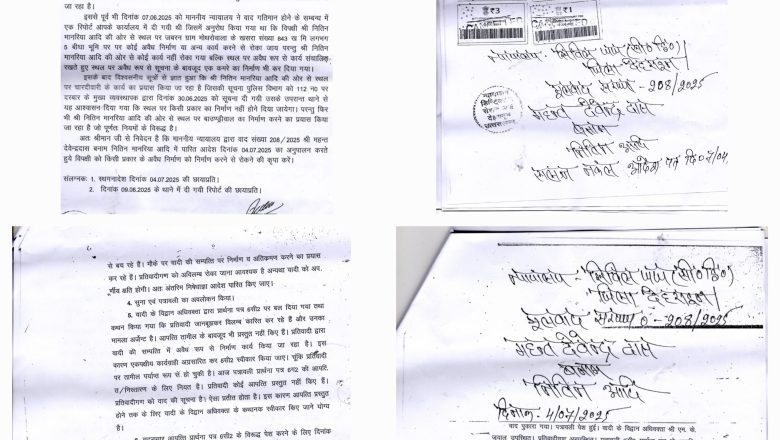 जा रहा है।
इससे पूर्व भी दिनांक 07.06.2025 को माननीय न्यायालय ने वाद गतिमान होने के सम्बन्ध में
एक रिपोर्ट आपके कार्यालय में दी गयी थी जिसमें अनुरोध किया गया था कि विपक्षी श्री नितिन
मानरिया आदि की ओर से स्थल पर जबरन ग्राम मोथरोवाला के खसरा संख्या 843 ख मि लगभग
5 बीघा भूमि पर पर कोई अवैध निर्माण या अन्य कार्य करने से रोका जाय परन्तु श्री नितिन
मानरिया आदि की ओर से कोई कार्य नहीं रोका गया बल्कि स्थल पर अवैध रूप से कार्य संचालित
रखते हुए स्थल पर अवैध रूप से सूचना के बावजूद एक कमरे का निर्माण भी कर दिया गया।
इसके बाद विश्वसनीय सूत्रों से ज्ञात हुआ कि श्री नितिन मानरिया आदि की ओर से स्थल
पर चारदीवारी के कार्य का प्रयास किया जा रहा है जिसकी सूचना पुलिस विभाग को 112 न0 पर
दरबार के मुख्य व्यवस्थापक द्वारा दिनांक 30.06.2025 को सूचना दी गयी उसके उपरान्त थाने से
यह आश्वासन दिया गया कि स्थल पर किसी प्रकार का निर्माण नहीं होने दिया जायेगा। परन्तु फिर
भी श्री नितिन मानरिया आदि की ओर से स्थल पर बाउण्ड्रीवाल का निर्माण करने का प्रयास किया
जा रहा है जो पूर्णतः नियमों के विरूद्ध है।
अतः श्रीमान जी से निवेदन है कि माननीय न्यायालय द्वारा वाद संख्या 208/2025 श्री महन्त
देवेन्द्रदास बनाम नितिन मानरिया आदि में पारित आदेश दिनांक 04.07.2025 का अनुपालन कराते
हुये विपक्षी को किसी प्रकार के अवैध निर्माण को निर्माण करने से रोकने की कृपा करें।
संलग्नकः 1. स्थगनादेश दिनांक 04.07.2025 की छायाप्रति।
2. दिनांक 09.06.2025 के थाने में दी गयी रिपोर्ट की छायाप्रति।
₹3
₹
सिविल
208/2025
महन्त देवेन्द्र दास
बनाम
नितिन आदि
2
से बच रहे हैं। मौके पर वादी की सम्पत्ति पर निर्माण व अतिक्रमण करने का प्रयास
कर रहे हैं। प्रतिवादीगण को अविलम्ब रोका जाना आवश्यक है अन्यथा वादी को अपू
र्णीय क्षति होगी। अतः अंतरिम निषेधाज्ञा आदेश पारित किए जाए।
4. सुना एवं पत्रावली का अवलोकन किया।
5. वादी के विद्वान अधिवक्ता द्वारा प्रार्थना पत्र 6सी2 पर बल दिया गया तथा
कथन किया गया कि प्रतिवादी जानबूझकर विलम्ब कारित कर रहे हैं और उनका
मामला अर्जेन्ट है। आपत्ति तामील के बावजूद भी प्रस्तुत नहीं किए हैं। प्रतिवादी द्वारा
वादी की सम्पत्ति में अवैध रूप से निर्माण कार्य किया जा रहा है। इस
कारण एकपक्षीय कार्यवाही अग्रसारित कर 6सी2 स्वीकार किया जाए। चूंकि प्रतिवादी
पर तामील पर्याप्त रूप से हो चुकी है। आज पत्रावली प्रार्थना पत्र 6सी2 की आपत्ति
त/निस्तारण के लिए नियत है। प्रतिवादी कोई आपत्ति प्रस्तुत नहीं किए हैं।
प्रतिवादीगण को वाद की सूचना है। ऐसा प्रतीत होता है। इस कारण आपत्ति प्रस्तुत
होने तक के लिए वादी के विद्वान अधिवक्ता के कथनानक स्वीकार किए जाने योग्य
है।
आपत्ति प्रार्थना पत्र 6सी2 के विरूद्ध पेश करने के लिए दिनांक
न्यायालय सिविल जज (सी0 डि0)
जिला देहरादून
मूलवाद संख्या 0-208/2025
महन्त देवेन्द्र दास
बनाम
नितिन आदि
दिनांक-4/07/2025
वाद पुकारा गया। पत्रावली पेश हुई। वादी के विद्वान अधिवक्ता श्री एम. के.